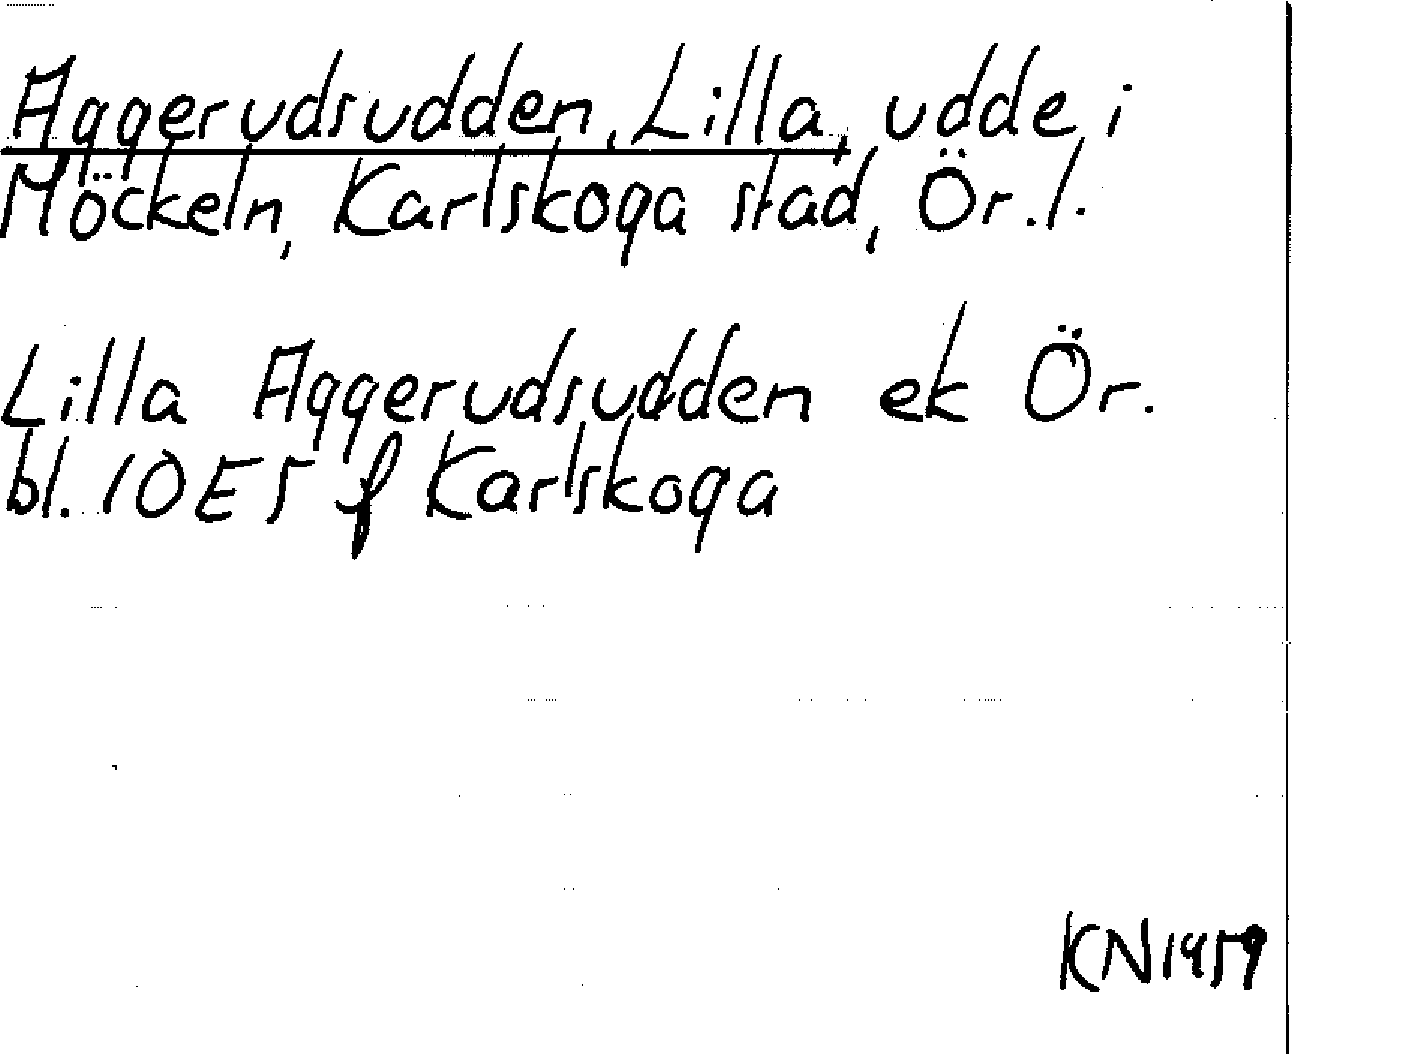 Aggerudsudden, Lilla, udde i
Möckeln, Karlskoga stad, Ör. l.
Lilla Aggerudsudden ek Ör.
bl. 10E5 f Karlskoga
KN 1959